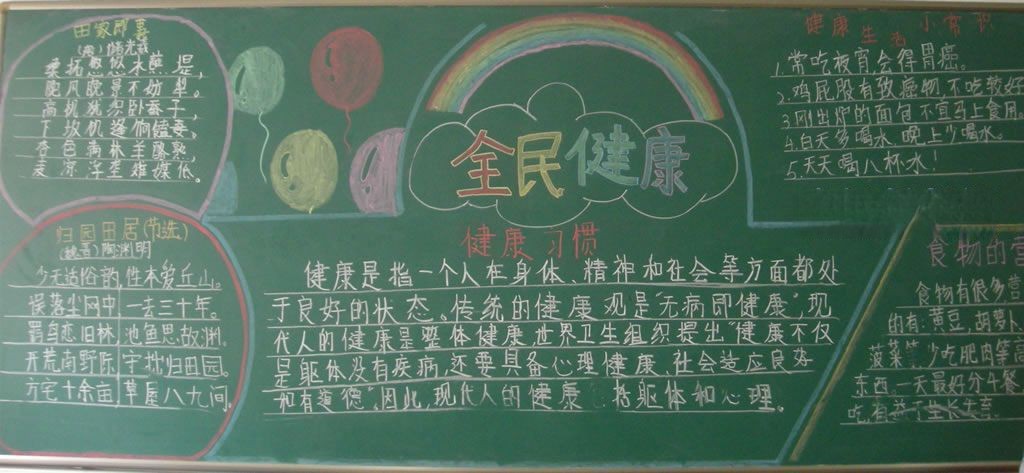 田家即事
(唐)储光羲
桑柘悠悠水蘸堤,
晚风晚景不妨犁。
高机犹织卧蚕子,
下坂饥逢饷馌妻。
杏色满林羊酪熟,
麦凉浮垄雉媒低。
归园田居(节选)
(魏晋)陶渊明
少无适俗韵,性本爱丘山。
误落尘网中 一去三十年。
羁鸟恋旧林 池鱼思故渊。
开荒南野际 守拙归田园。
方宅十余亩 草屋八九间。
全民健康
健康习惯
健康是指一个人在身体、精神和社会等方面都处
于良好的状态。传统的健康观是"无病即健康",现
代人的健康是整体健康,世界卫生组织提出"健康不仅
是躯体没有疾病,还要具备心理健康、社会适应良好
和有道德"。因此,现代人的健康 括躯体和心理。
健康生活 小常识
1.常吃板 会得胃癌。
2.鸡屁股有致癌物 不吃较好
3.刚出炉的面包不宜马上食用。
4.白天多喝水,晚上少喝水。
5.天天喝八杯水!
食物的营
食物有很多营
的有:黄豆、胡萝卜、
菠菜等,少吃肥肉等高
东西.一天最好分
吃,有